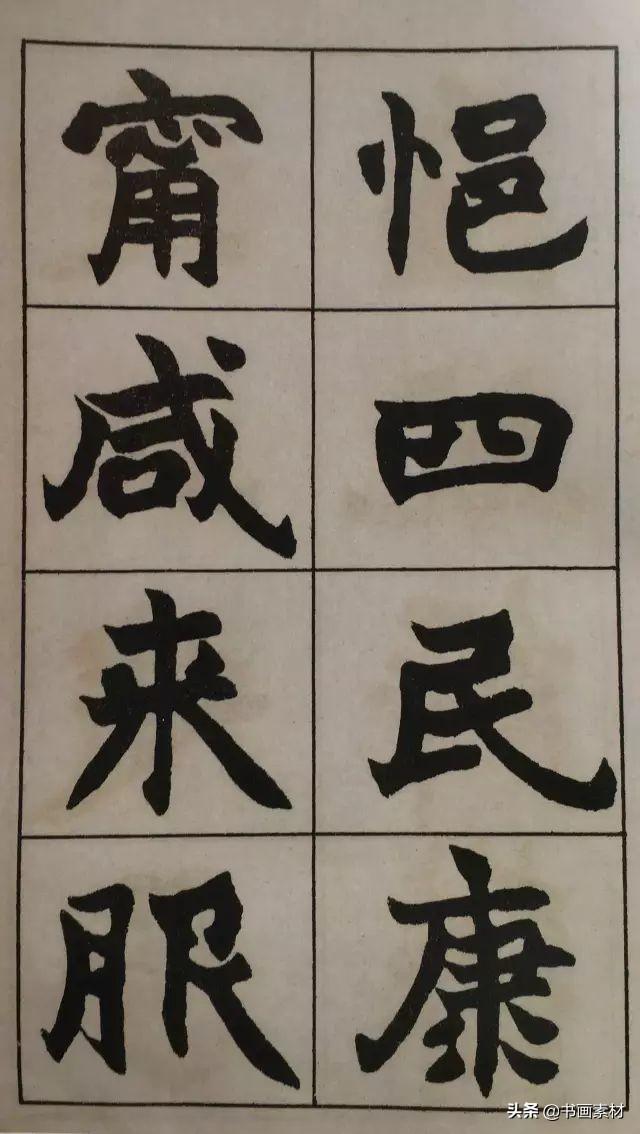 悒四民康
甯咸来服
头条 @书画素材